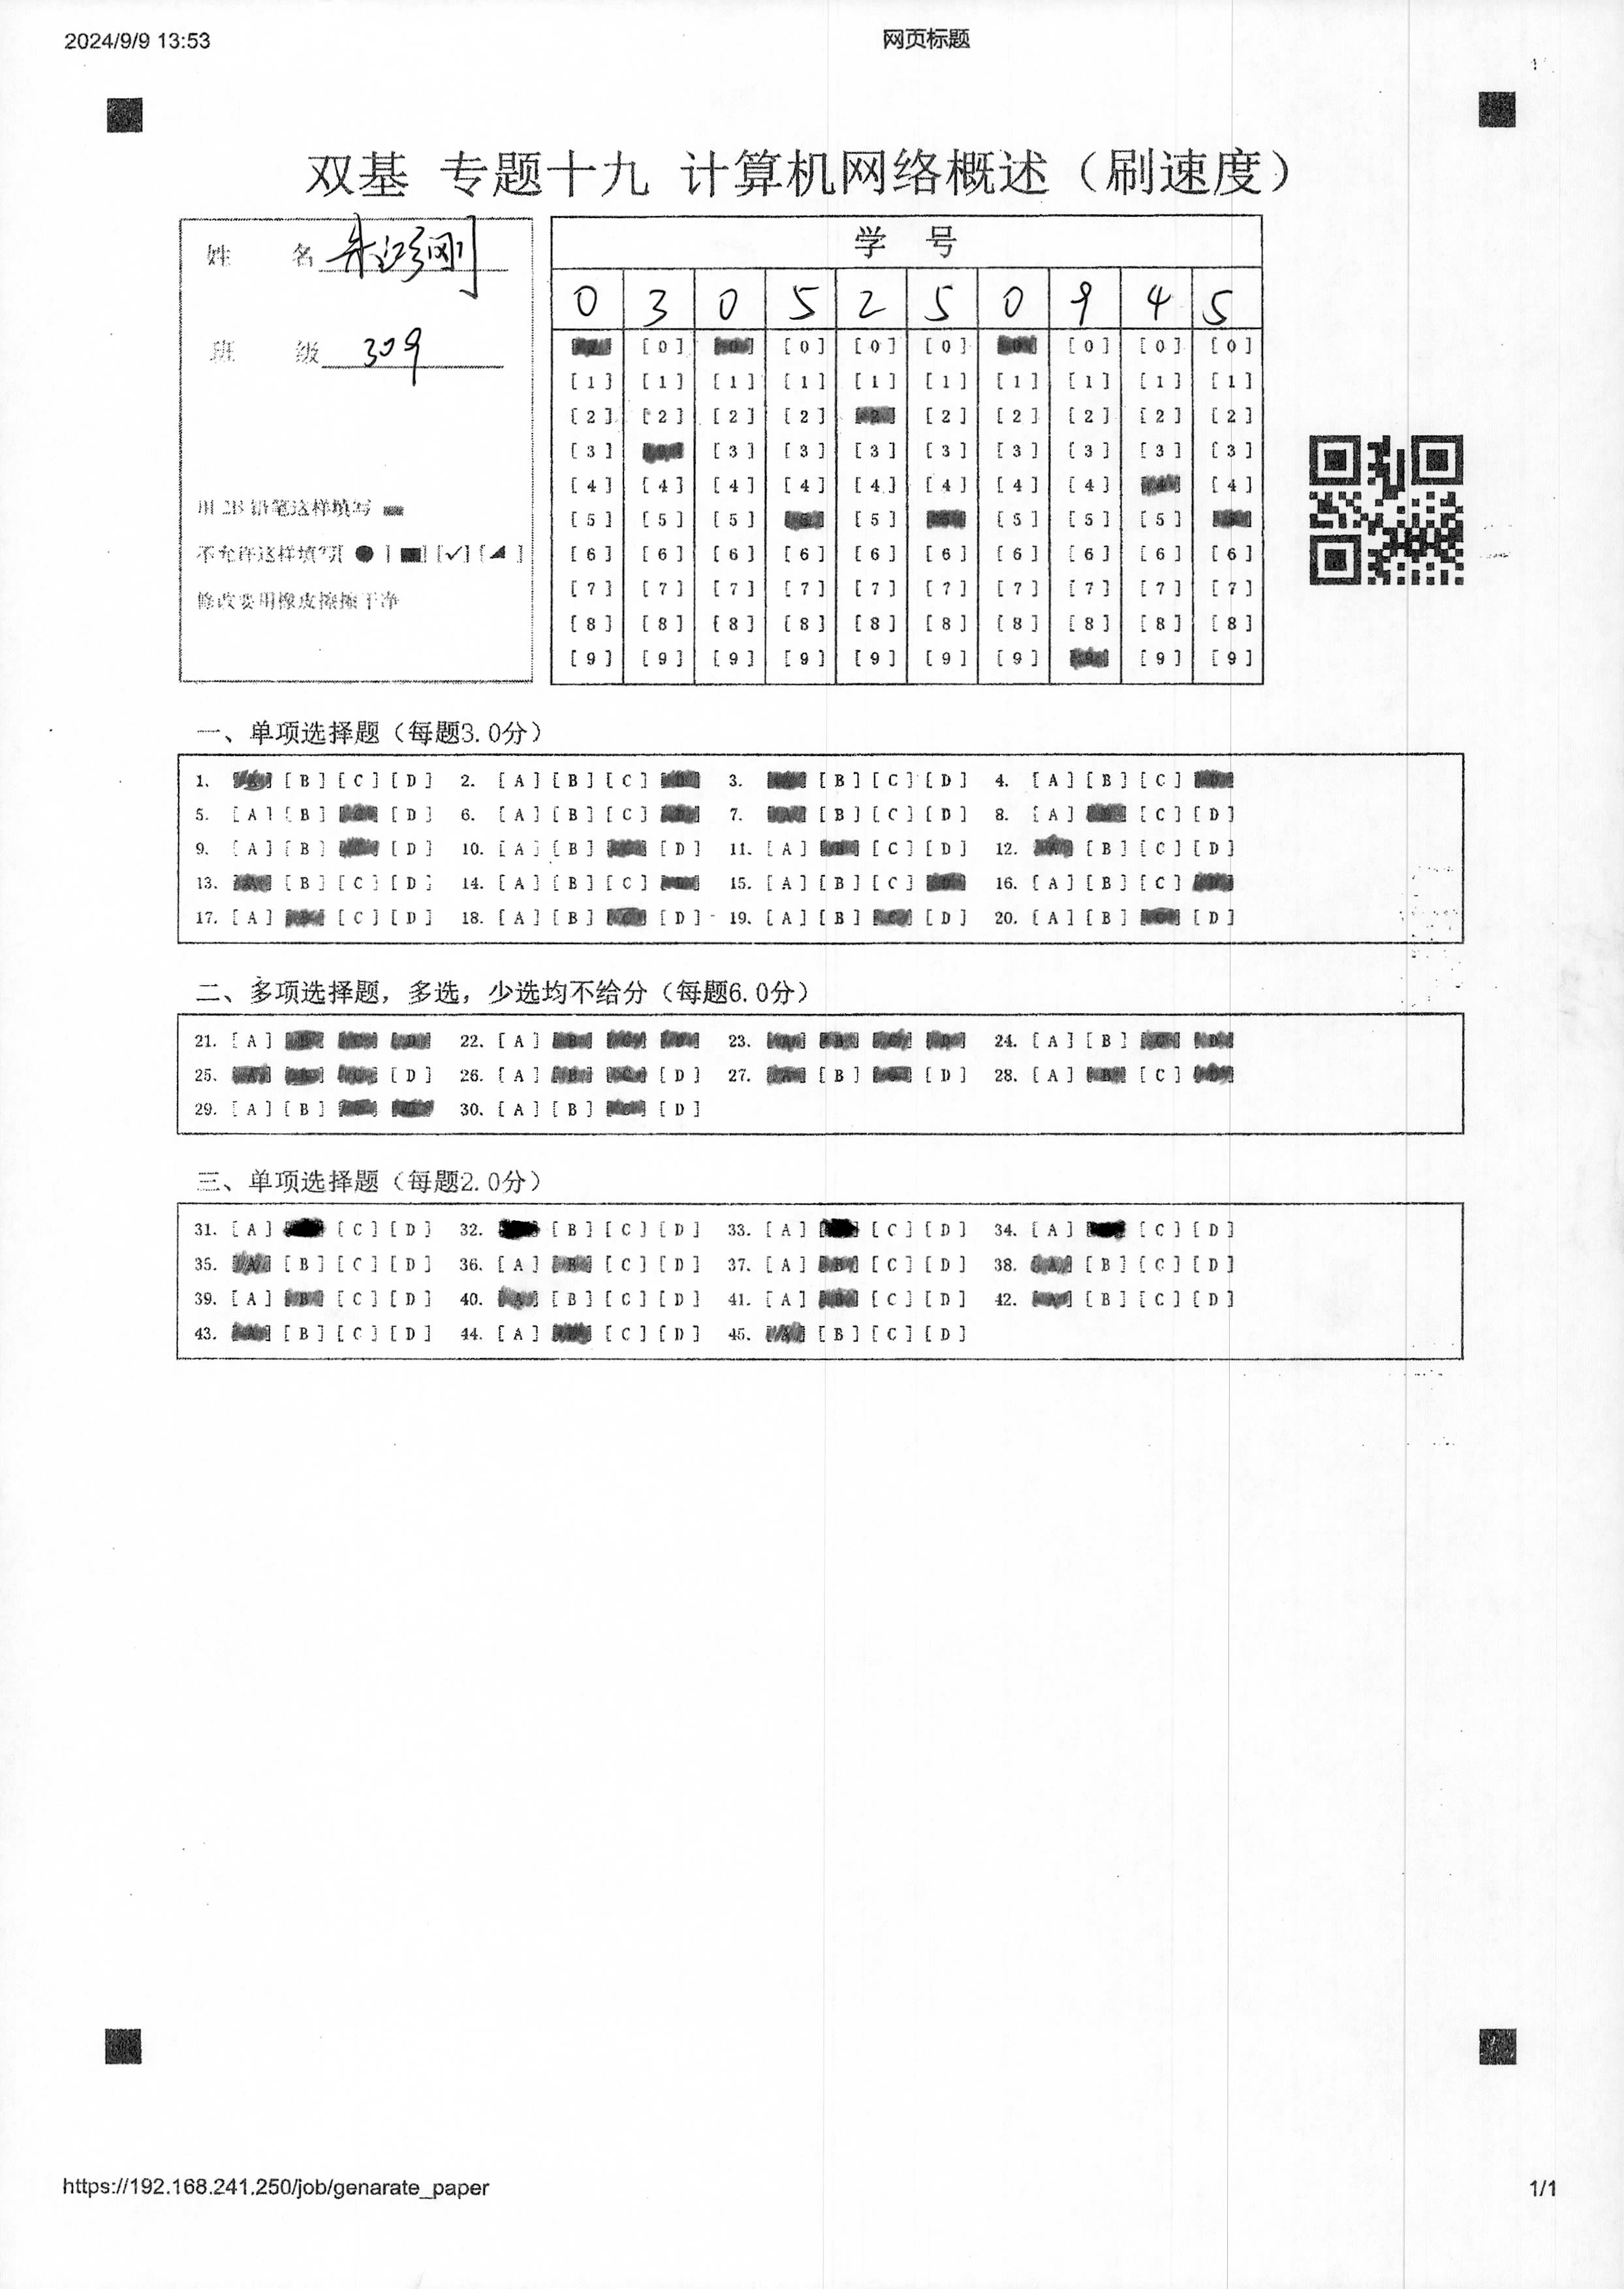 2024/9/9 13:53 网页标题
双基 专题十九 计算机网络概述（刷速度）
姓 名
班 级 309
用 2B 铅笔这样填写
不允许这样填写[ ● ] [■] [✓] [◢ ]
修改要用橡皮擦擦干净
学 号
0 3 0 5 2 5 0 9 4 5
[0] [0] [0] [0] [0] [0] [0]
[1] [1] [1] [1] [1] [1] [1] [1] [1] [1]
[2] [2] [2] [2] [2] [2] [2] [2] [2]
[3] [3] [3] [3] [3] [3] [3] [3] [3]
[4] [4] [4] [4] [4] [4] [4] [4] [4]
[5] [5] [5] [5] [5] [5] [5]
[6] [6] [6] [6] [6] [6] [6] [6] [6] [6]
[7] [7] [7] [7] [7] [7] [7] [7] [7] [7]
[8] [8] [8] [8] [8] [8] [8] [8] [8] [8]
[9] [9] [9] [9] [9] [9] [9] [9] [9]
一、单项选择题（每题3.0分）
1. [B] [C] [D] 2. [A] [B] [C] 3. [B] [C] [D] 4. [A] [B] [C]
5. [A] [B] [D] 6. [A] [B] [C] 7. [B] [C] [D] 8. [A] [C] [D]
9. [A] [B] [D] 10. [A] [B] [D] 11. [A] [C] [D] 12. [B] [C] [D]
13. [B] [C] [D] 14. [A] [B] [C] 15. [A] [B] [C] 16. [A] [B] [C]
17. [A] [C] [D] 18. [A] [B] [D] 19. [A] [B] [D] 20. [A] [B] [D]
二、多项选择题，多选，少选均不给分（每题6.0分）
21. [A] 22. [A] 23. 24. [A] [B]
25. [D] 26. [A] [D] 27. [B] [D] 28. [A] [C]
29. [A] [B] 30. [A] [B] [D]
三、单项选择题（每题2.0分）
31. [A] [C] [D] 32. [B] [C] [D] 33. [A] [C] [D] 34. [A] [C] [D]
35. [B] [C] [D] 36. [A] [C] [D] 37. [A] [C] [D] 38. [B] [C] [D]
39. [A] [C] [D] 40. [B] [C] [D] 41. [A] [C] [D] 42. [B] [C] [D]
43. [B] [C] [D] 44. [A] [C] [D] 45. [B] [C] [D]
https://192.168.241.250/job/genarate_paper 1/1